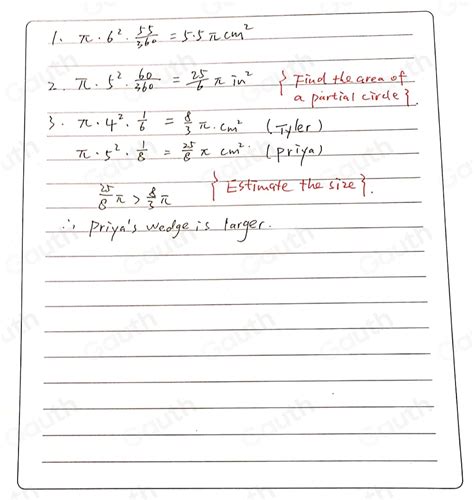 1. π · 6² · 55/360 = 5.5 π cm²
2. π · 5² · 60/360 = 25/6 π in² } Find the area of
a partial circle }.
3. π · 4² · 1/6 = 8/3 π. cm² (Tyler)
π · 5² · 1/8 = 25/8 π cm². (priya)
25/8 π > 8/3 π } Estimate the size }.
∴ Priya's wedge is larger.